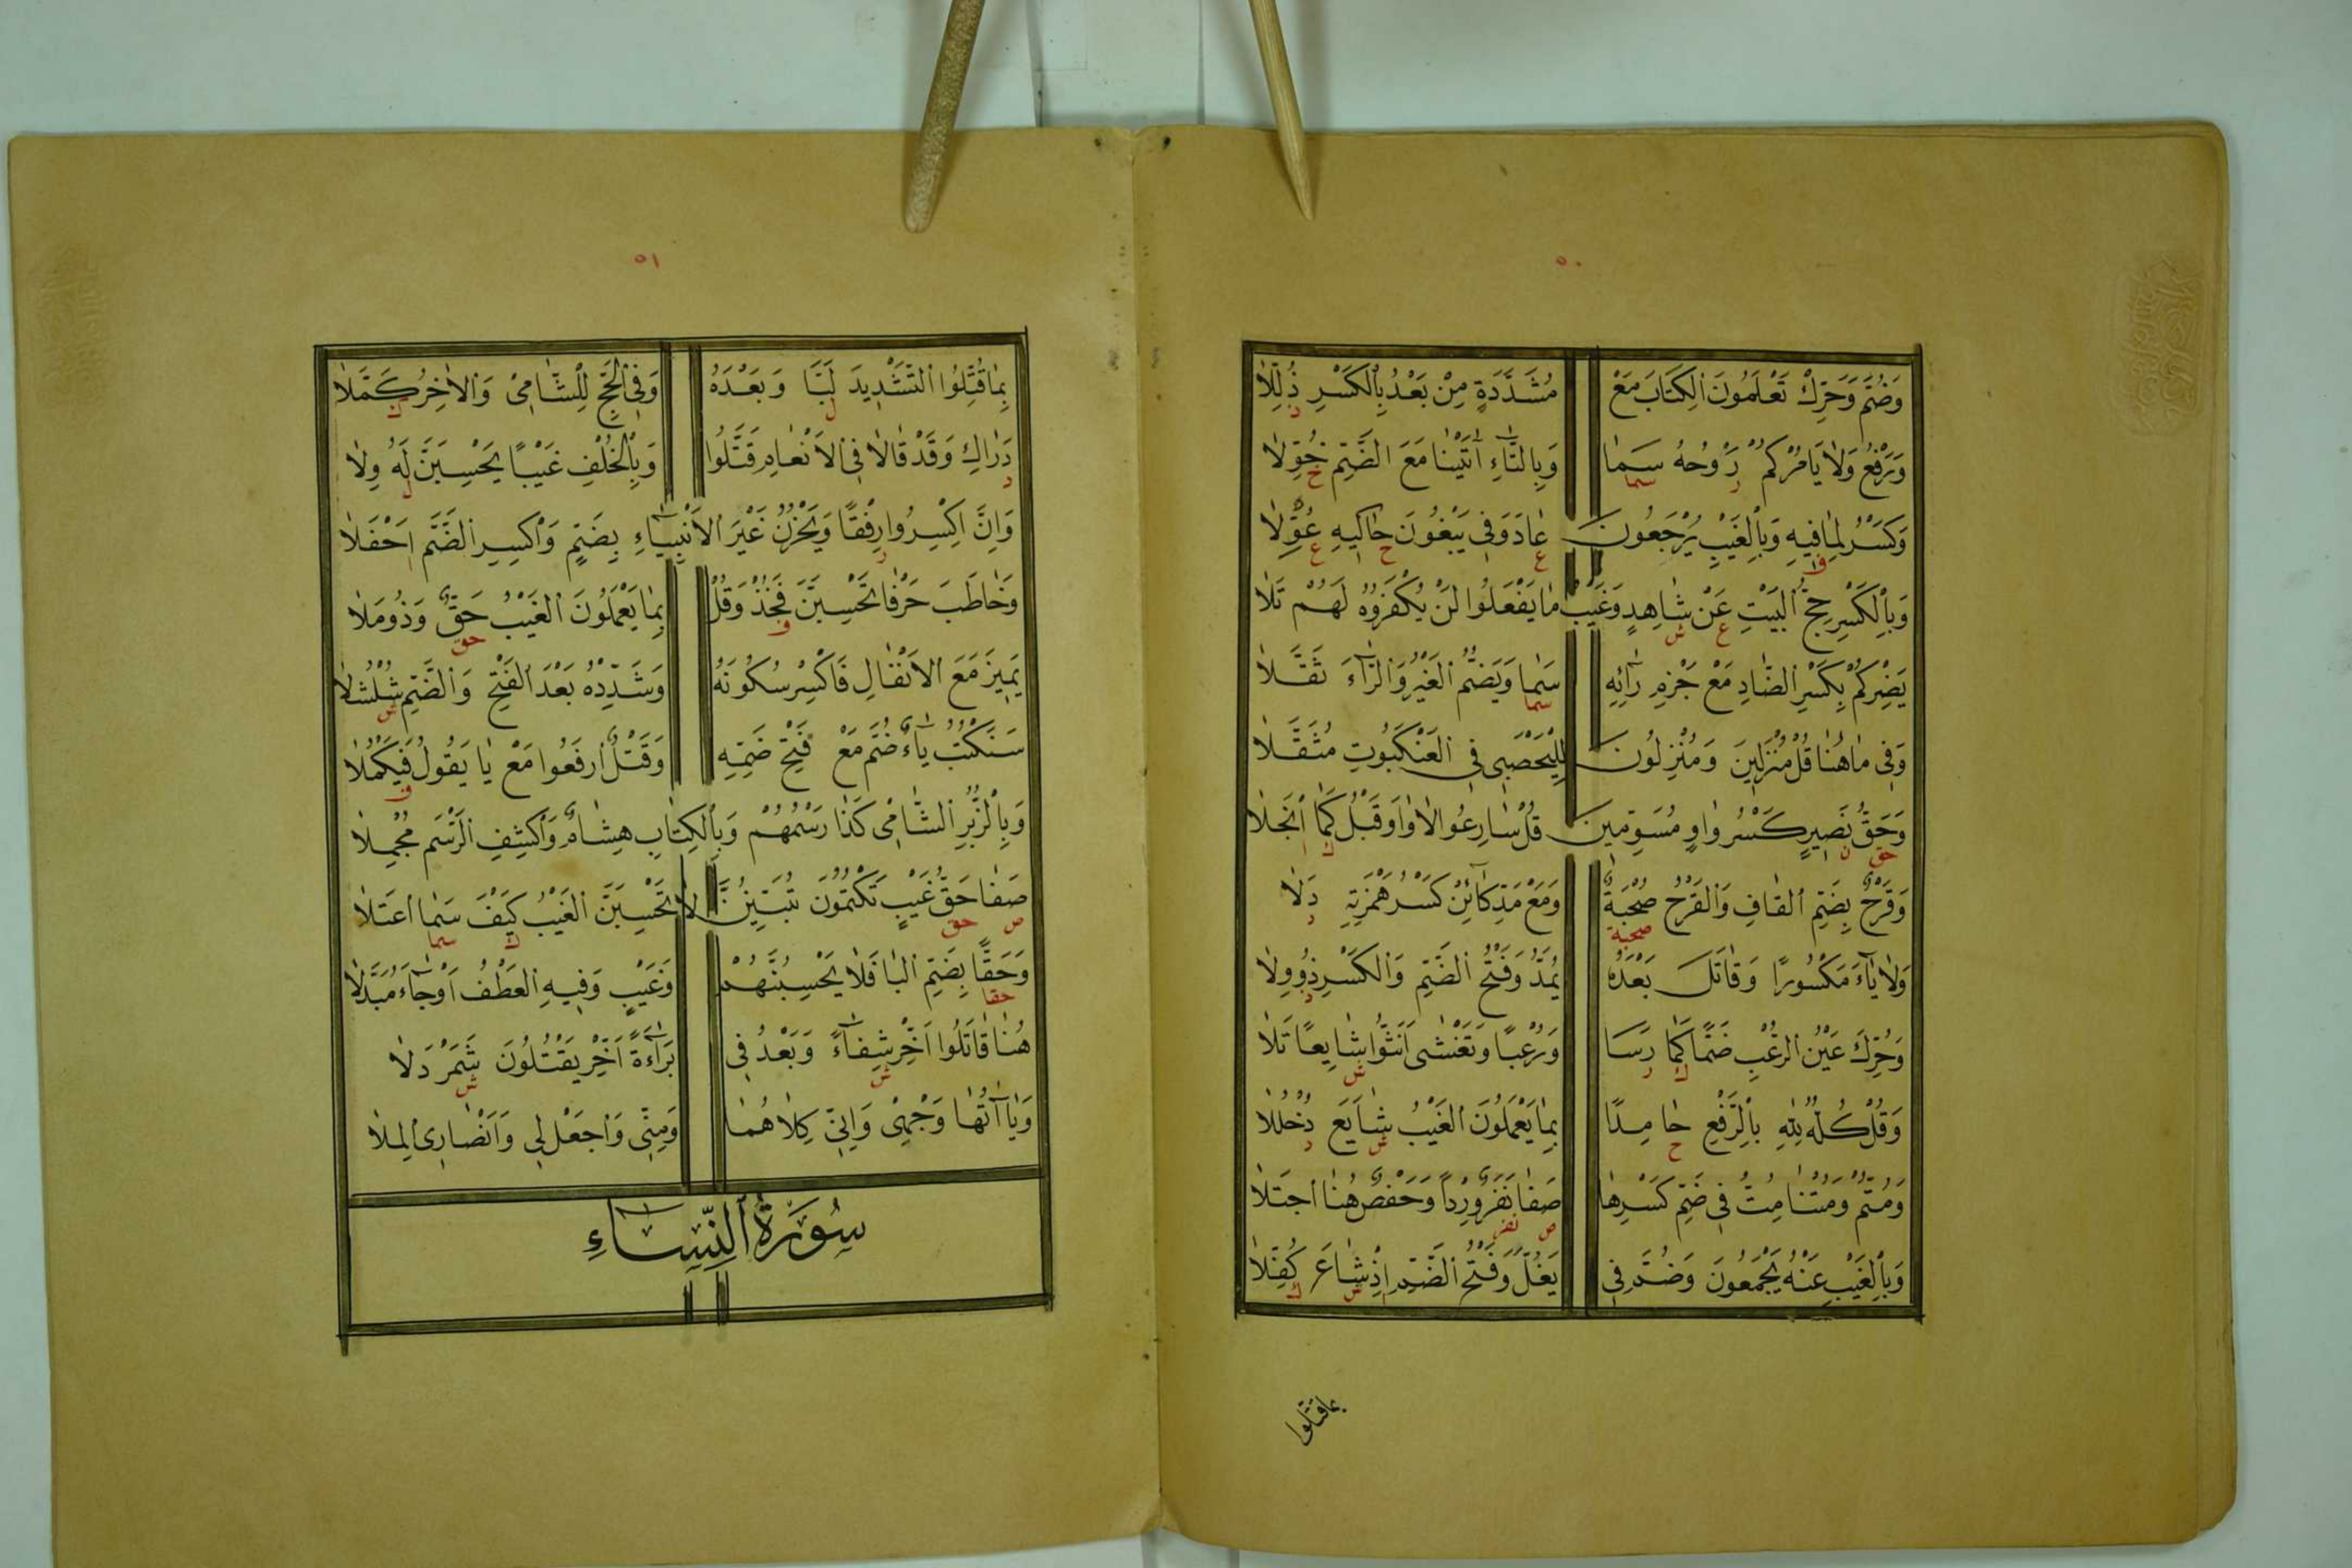 ٥٠
وَضُمَّ وَحَرِّكْ تَعْلَمُونَ الْكِتَابَ مَعْ مُشَدَّدَةٍ مِنْ بَعْدُ بِالْكَسْرِ ذُلِّلَا
وَرَفْعُ وَلَا يَأْمُرْكُمُ رَوْحُهُ سَمَا وَبِالتَّاءِ آتَيْنَا مَعَ الضَّمِّ خُوِّلَا
وَكَسْرُ لِمَا فِيهِ وَبِالْغَيْبِ يُرْجَعُونَ عَادَ وَفِي يَبْغُونَ حَاكِيهِ عُوِّلَا
وَبِالْكَسْرِ حِجُّ الْبَيْتِ عَنْ شَاهِدٍ وَغَيْبُ مَا يَفْعَلُوا لَنْ يُكْفَرُوهُ لَهُمْ تَلَا
يَضِرْكُمْ بِكَسْرِ الضَّادِ مَعْ جَزْمِ رَائِهِ سَمَا وَيَضُمُّ الْغَيْرُ وَالرَّاءَ ثَقَّلَا
وَفِي مَا هُنَا قُلْ مُنْزَلِينَ وَمُنْزِلُونَ لِلْيَحْصَبِي فِي الْعَنْكَبُوتِ مُثَقَّلَا
وَحَقُّ نَصِيرٍ كَسْرُ وَاوٍ مُسَوِّمِينَ قُلْ سَارِعُوا لَا وَاوَ قَبْلُ كَمَا انْجَلَا
وَقَرْحٌ بِضَمِّ الْقَافِ وَالْقَرْحُ صُحْبَةٌ وَمَعْ مَدِّ كَائِنْ كَسْرُ هَمْزَتِهِ دَلَا
وَلَا يَاءَ مَكْسُورًا وَقَاتَلَ بَعْدَهُ يُمَدُّ وَفَتْحُ الضَّمِّ وَالْكَسْرِ ذُو وِلَا
وَحُرِّكَ عَيْنُ الرُّعْبِ ضَمًّا كَمَا رَسَا وَرُعْبًا وَتَغْشَى أَنَّثُوا شَايِعًا تَلَا
وَقُلْ كُلُّهُ لِلَّهِ بِالرَّفْعِ حَامِدًا بِمَا يَعْمَلُونَ الْغَيْبُ شَايَعَ دُخْلُلَا
وَمُتُّمْ وَمُتْنَا مِتُّ فِي ضَمِّ كَسْرِهَا صَفَا نَفَرٌ وِرْدًا وَحَفْصٌ هُنَا اجْتَلَا
وَبِالْغَيْبِ عَنْهُ يَجْمَعُونَ وَضُمَّ فِي يَغُلَّ وَفَتْحُ الضَّمِّ إِذْ شَاعَ كُفِّلَا
بما قتلوا
٥١
بِمَا قُتِّلُوا التَّشْدِيدَ لَبَّا وَبَعْدَهُ وَفِي الْحَجِّ لِلشَّامِيْ وَالْآخِرُ كَمَّلَا
دَرَاكِ وَقَدْ قَالَا فِي الْأَنْعَامِ قَتَّلُوا وَبِالْخُلْفِ غَيْبًا يَحْسِبَنَّ لَهُ وِلَا
وَإِنَّ اكْسِرُوا رِفْقًا وَيَحْزُنُ غَيْرَ الْأَنْبِيَاءِ بِضَمٍّ وَاكْسِرِ الضَّمَّ أَحْفَلَا
وَخَاطَبَ حَرْفَا تَحْسِبَنَّ فَخُذْ وَقُلْ بِمَا يَعْمَلُونَ الْغَيْبُ حَقٌّ وَذُو مَلَا
يَمِيزَ مَعَ الْأَنْفَالِ فَاكْسِرْ سُكُونَهُ وَشَدِّدْهُ بَعْدَ الْفَتْحِ وَالضَّمِّ شُلْشُلَا
سَنَكْتُبُ يَاءٌ ضُمَّ مَعْ فَتْحِ ضَمِّهِ وَقَتْلُ ارْفَعُوا مَعْ يَا يَقُولُ فَيَكْمُلَا
وَبِالزُّبُرِ الشَّامِيْ كَذَا رَسْمُهُمْ وَبِالْكِتَابِ هِشَامٌ وَاكْشِفِ الرَّسْمَ مُجْمِلَا
صَفَا حَقُّ غَيْبٍ تَكْتُمُونَ تُبَيِّنُنَّ لَا تَحْسِبَنَّ الْغَيْبُ كَيْفَ سَمَا اعْتَلَا
وَحَقًّا بِضَمِّ الْبَا فَلَا يَحْسِبُنَّهُمْ وَغَيْبٍ وَفِيهِ الْعَطْفُ أَوْ جَاءَ مُبْدَلَا
هُنَا قَاتَلُوا أَخِّرْ شِفَاءً وَبَعْدُ فِي بَرَاءَةٌ أَخِّرْ يَقْتُلُونَ شَمَرْدَلَا
وَيَا آتُهَا وَجْهِيْ وَإِنِّيَ كِلَاهُمَا وَمِنِّي وَاجْعَلْ لِي وَأَنْصَارِيَ الْمِلَا
سُورَةُ النِّسَاءِ